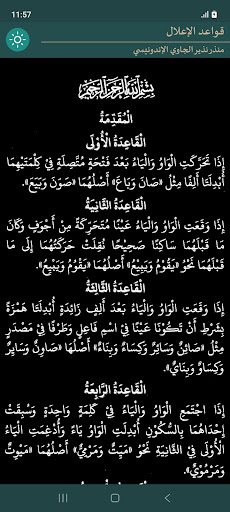 11:57
قواعد الإعلال
منذر نذير الجاوي الإندونيسي
بِسْمِ اللَّهِ الرَّحْمَنِ الرَّحِيمِ
الْمُقَدِّمَةُ
الْقَاعِدَةُ الْأُوْلَى
إِذَا تَحَرَّكَتِ الْوَاوُ وَالْيَاءُ بَعْدَ فَتْحَةٍ مُتَّصِلَةٍ فِي كِلْمَتَيْهِمَا
أُبْدِلَتَا أَلِفًا مِثْلُ «صَانَ وَبَاعَ» أَصْلُهُمَا «صَوَنَ وَبَيَعَ».
الْقَاعِدَةُ الثَّانِيَةُ
إِذَا وَقَعَتِ الْوَاوُ وَالْيَاءُ عَيْنًا مُتَحَرِّكَةً مِنْ أَجْوَفٍ وَكَانَ
مَا قَبْلَهُمَا سَاكِنًا صَحِيْحًا نُقِلَتْ حَرَكَتُهُمَا إِلَى مَا
قَبْلَهُمَا نَحْوُ «يَقُوْمُ وَيَبِيْعُ» أَصْلُهُمَا «يَقْوُمُ وَيَبْيِعُ».
الْقَاعِدَةُ الثَّالِثَةُ
إِذَا وَقَعَتِ الْوَاوُ وَالْيَاءُ بَعْدَ أَلِفٍ زَائِدَةٍ أُبْدِلَتَا هَمْزَةً
بِشَرْطِ أَنْ تَكُوْنَا عَيْنًا فِي اسْمِ فَاعِلٍ وَطَرَفًا فِي مَصْدَرٍ
مِثْلُ «صَائِنٌ وَسَائِرٌ وَكِسَاءٌ وَبِنَاءٌ» أَصْلُهَا «صَاوِنٌ وَسَايِرٌ
وَكِسَاوٌ وَبِنَايٌ».
الْقَاعِدَةُ الرَّابِعَةُ
إِذَا اجْتَمَعَ الْوَاوُ وَالْيَاءُ فِي كَلِمَةٍ وَاحِدَةٍ وَسُبِقَتْ
إِحْدَاهُمَا بِالسُّكُوْنِ أُبْدِلَتِ الْوَاوُ يَاءً وَأُدْغِمَتِ الْيَاءُ
الْأُوْلَى فِي الثَّانِيَةِ نَحْوُ «مَيِّتٌ وَمَرْمِيٌّ» أَصْلُهُمَا «مَيْوِتٌ
وَمَرْمُوْيٌ».